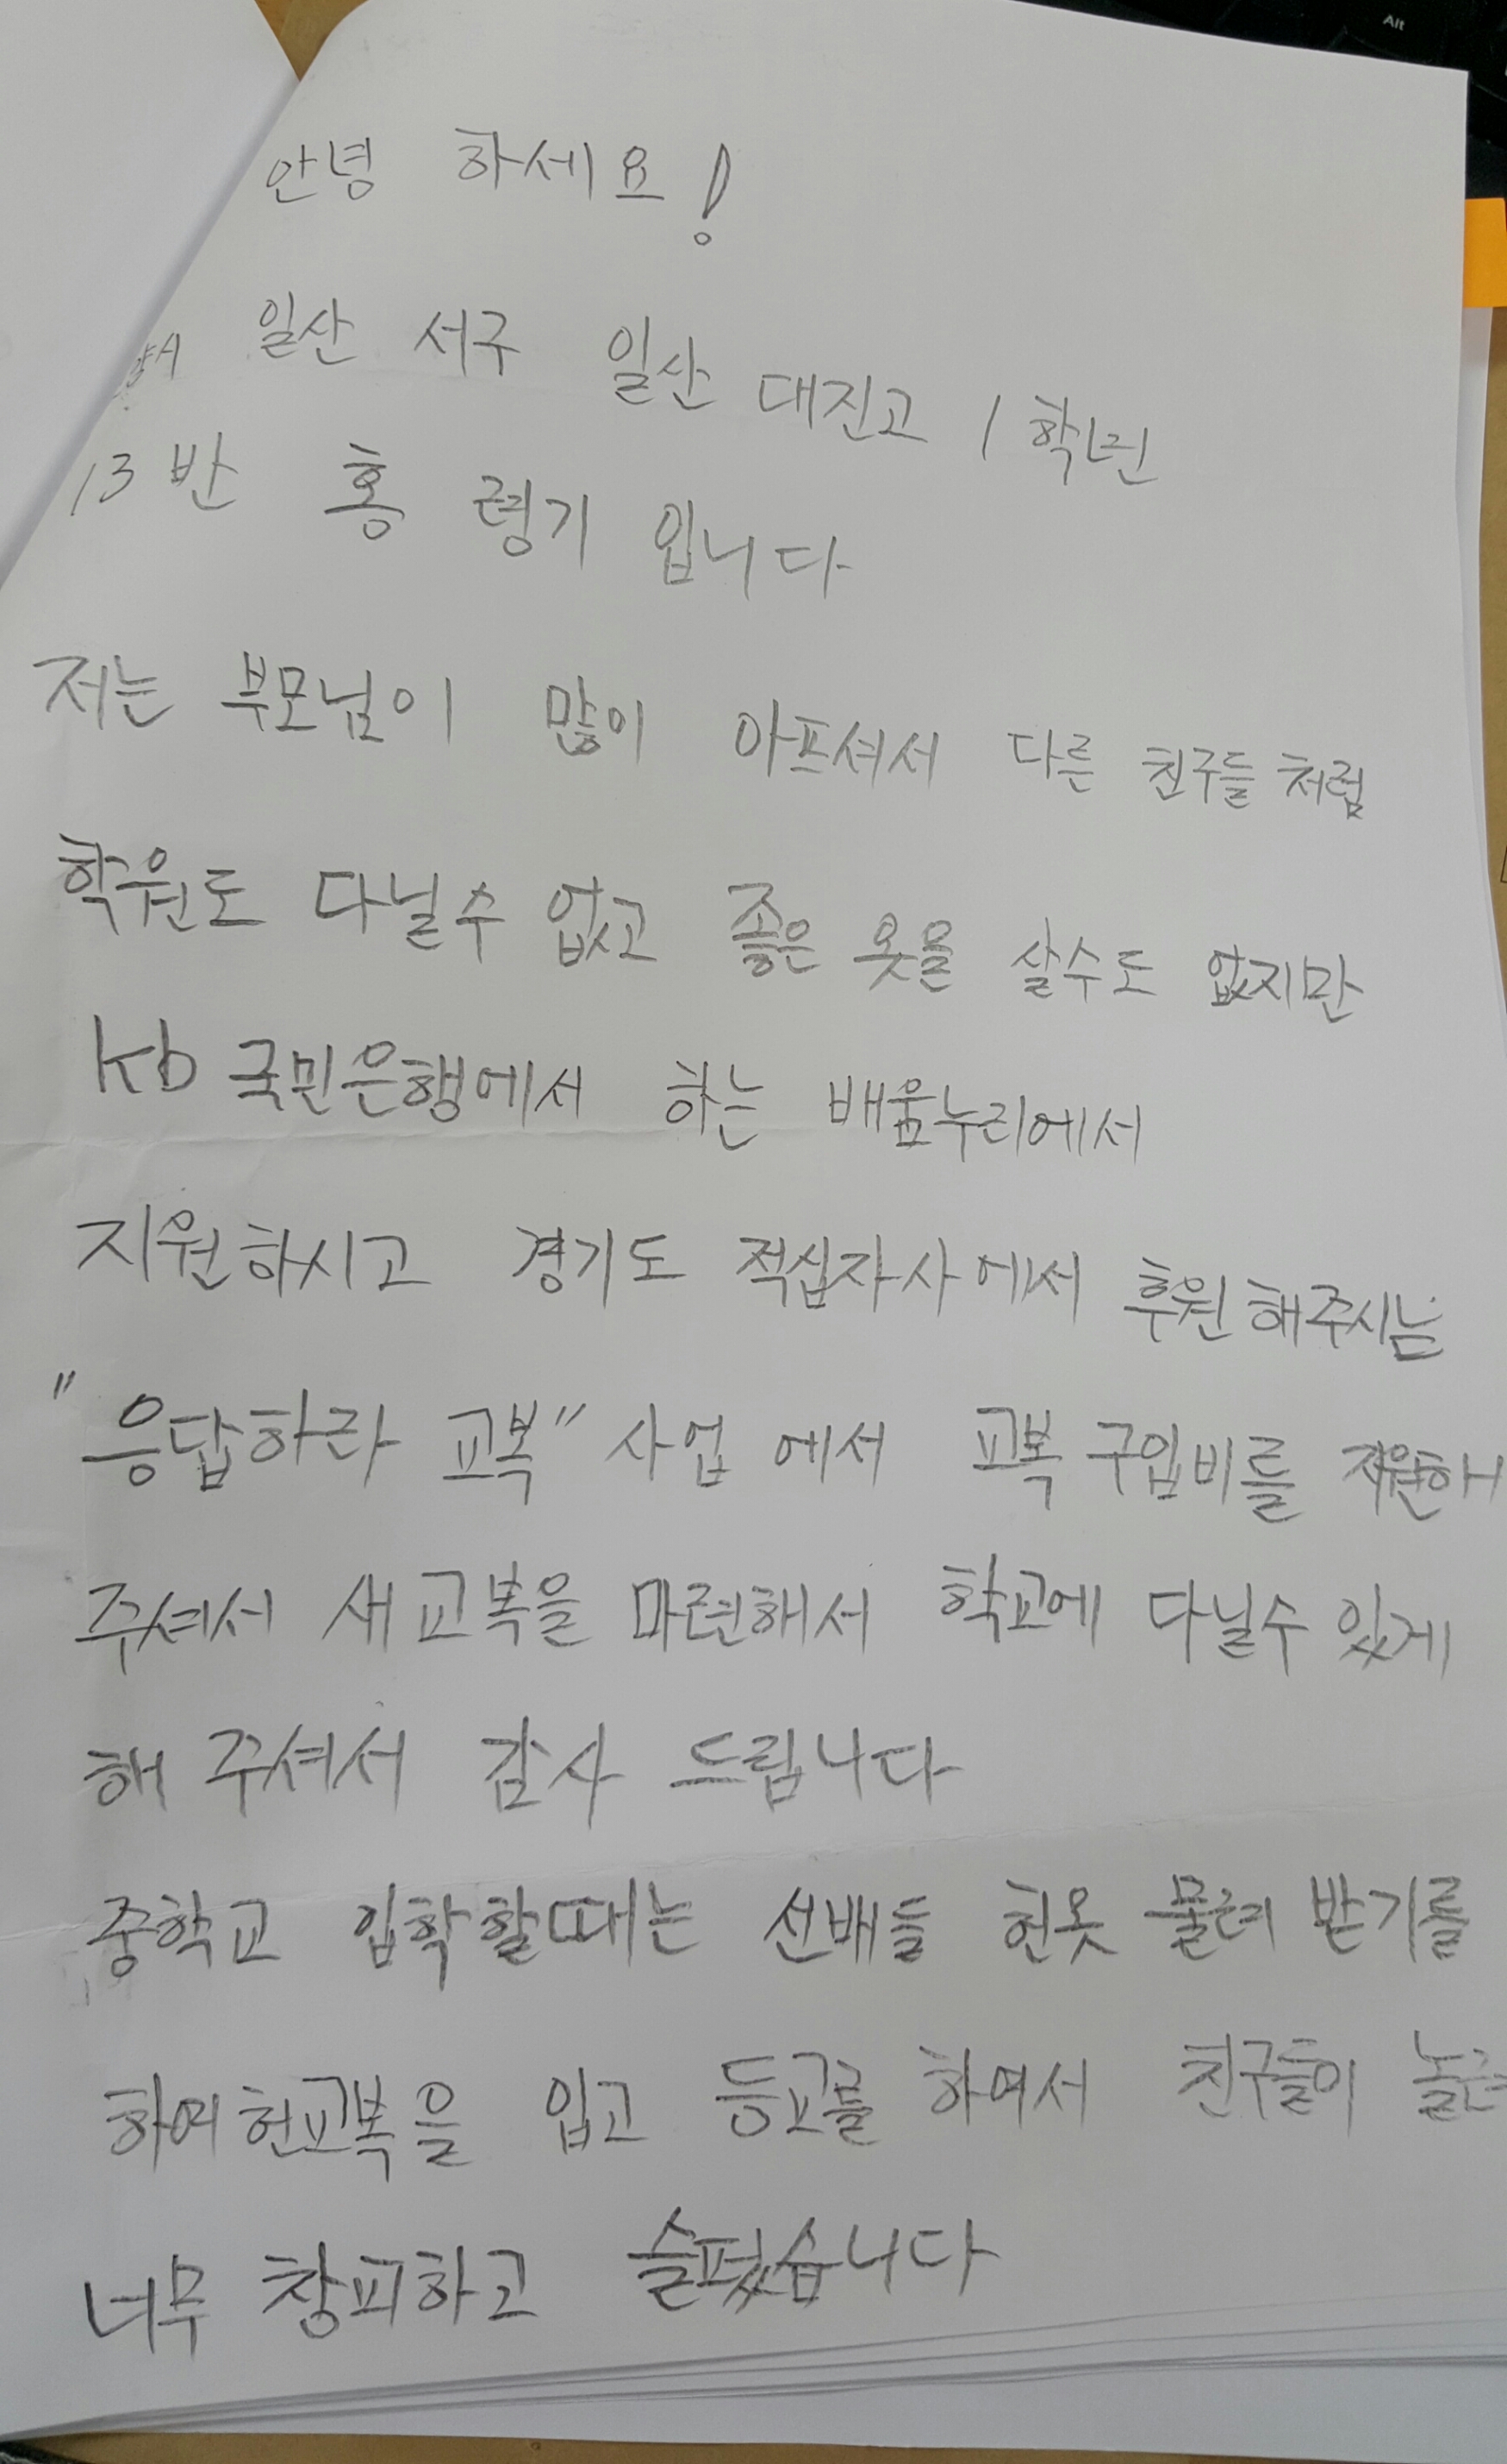 안녕 하세요!
일산 서구 일산 대진고 1학년
13반 홍 령기 입니다
저는 부모님이 많이 아프셔서 다른 친구들 처럼
학원도 다닐수 없고 좋은 옷을 살수도 없지만
kb 국민은행에서 하는 배움누리에서
지원하시고 경기도 적십자사에서 후원해주시는
"응답하라 교복" 사업 에서 교복 구입비를 지원해
주셔서 새교복을 마련해서 학교에 다닐수 있게
해 주셔서 감사 드립니다
중학교 입학할때는 선배들 헌옷 물려 받기를
하여 헌교복을 입고 등교를 하여서 친구들이 놀려
너무 창피하고 슬펐습니다